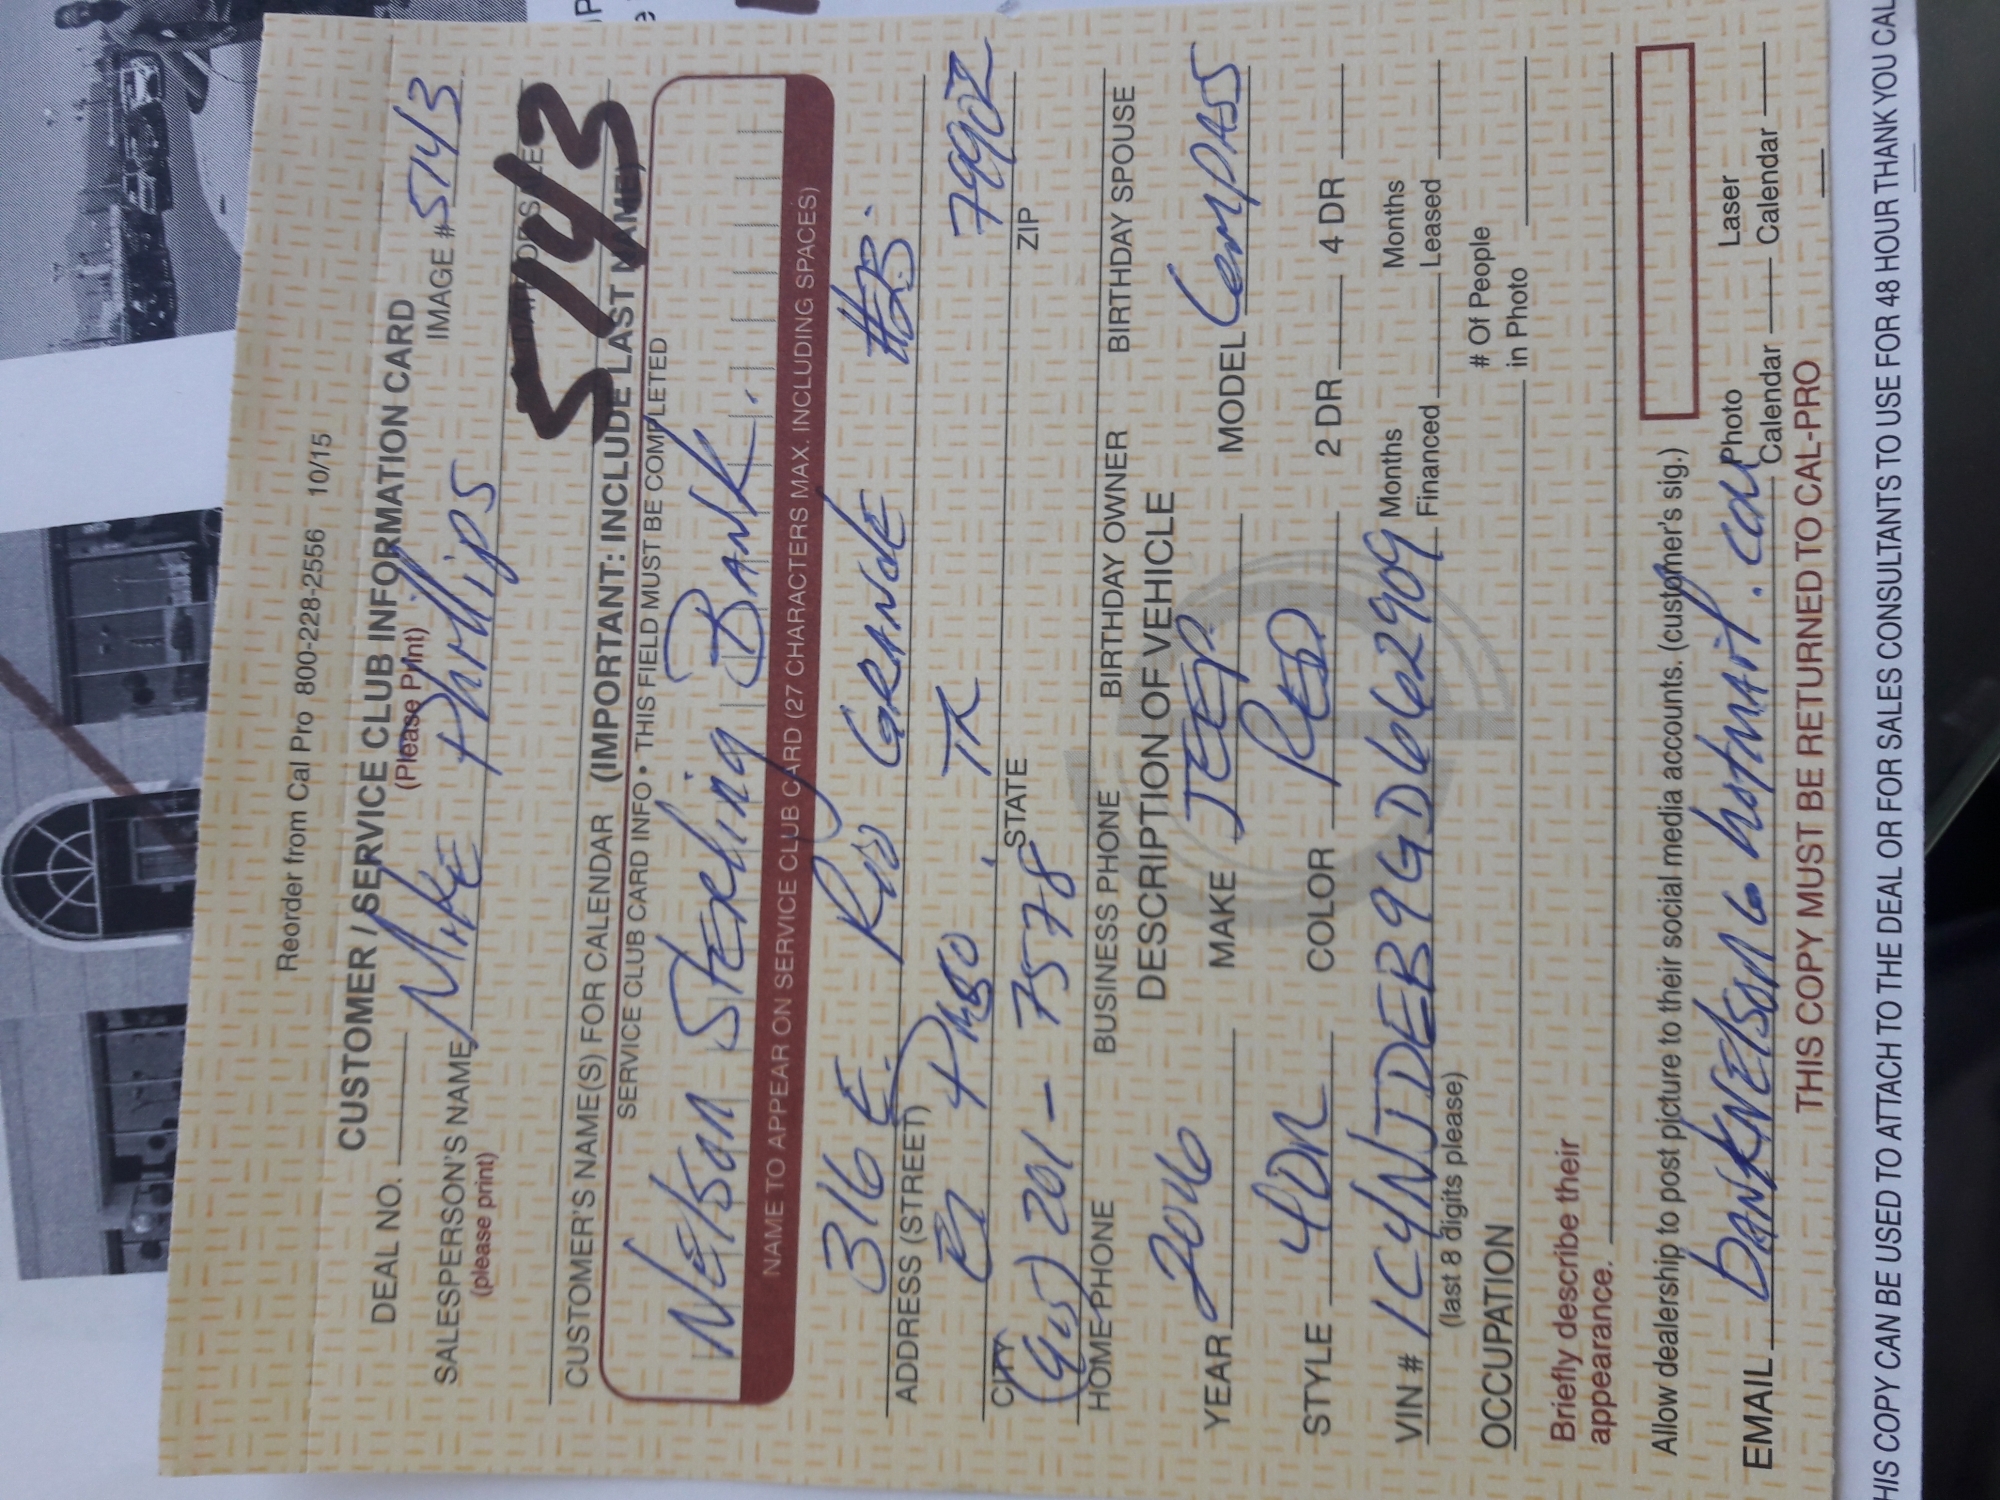 Reorder from Cal Pro 800-228-2556 10/15
CUSTOMER / SERVICE CLUB INFORMATION CARD
DEAL NO. (Please Print) IMAGE # 5743
SALESPERSON'S NAME Mike Phillips
(please print)
5743
CUSTOMER'S NAME(S) FOR CALENDAR (IMPORTANT: INCLUDE LAST NAME)
SERVICE CLUB CARD INFO • THIS FIELD MUST BE COMPLETED
Nelson Sterling Bank.
NAME TO APPEAR ON SERVICE CLUB CARD (27 CHARACTERS MAX. INCLUDING SPACES)
316 E. Rio GRANdE #2B.
ADDRESS (STREET)
El PASO, TX 79902
CITY STATE ZIP
(915) 201-7578
HOME PHONE BUSINESS PHONE BIRTHDAY OWNER BIRTHDAY SPOUSE
DESCRIPTION OF VEHICLE
YEAR 2016 MAKE JEEP MODEL COMPASS
STYLE 4DR COLOR RED 2 DR 4 DR
VIN # 1C4NJDEB9GD662909 Months Financed Months Leased
(last 8 digits please)
OCCUPATION # Of People in Photo
Briefly describe their
appearance.
Allow dealership to post picture to their social media accounts. (customer's sig.)
EMAIL hotmail.com Photo Calendar Laser Calendar
THIS COPY MUST BE RETURNED TO CAL-PRO
HIS COPY CAN BE USED TO ATTACH TO THE DEAL OR FOR SALES CONSULTANTS TO USE FOR 48 HOUR THANK YOU CAL